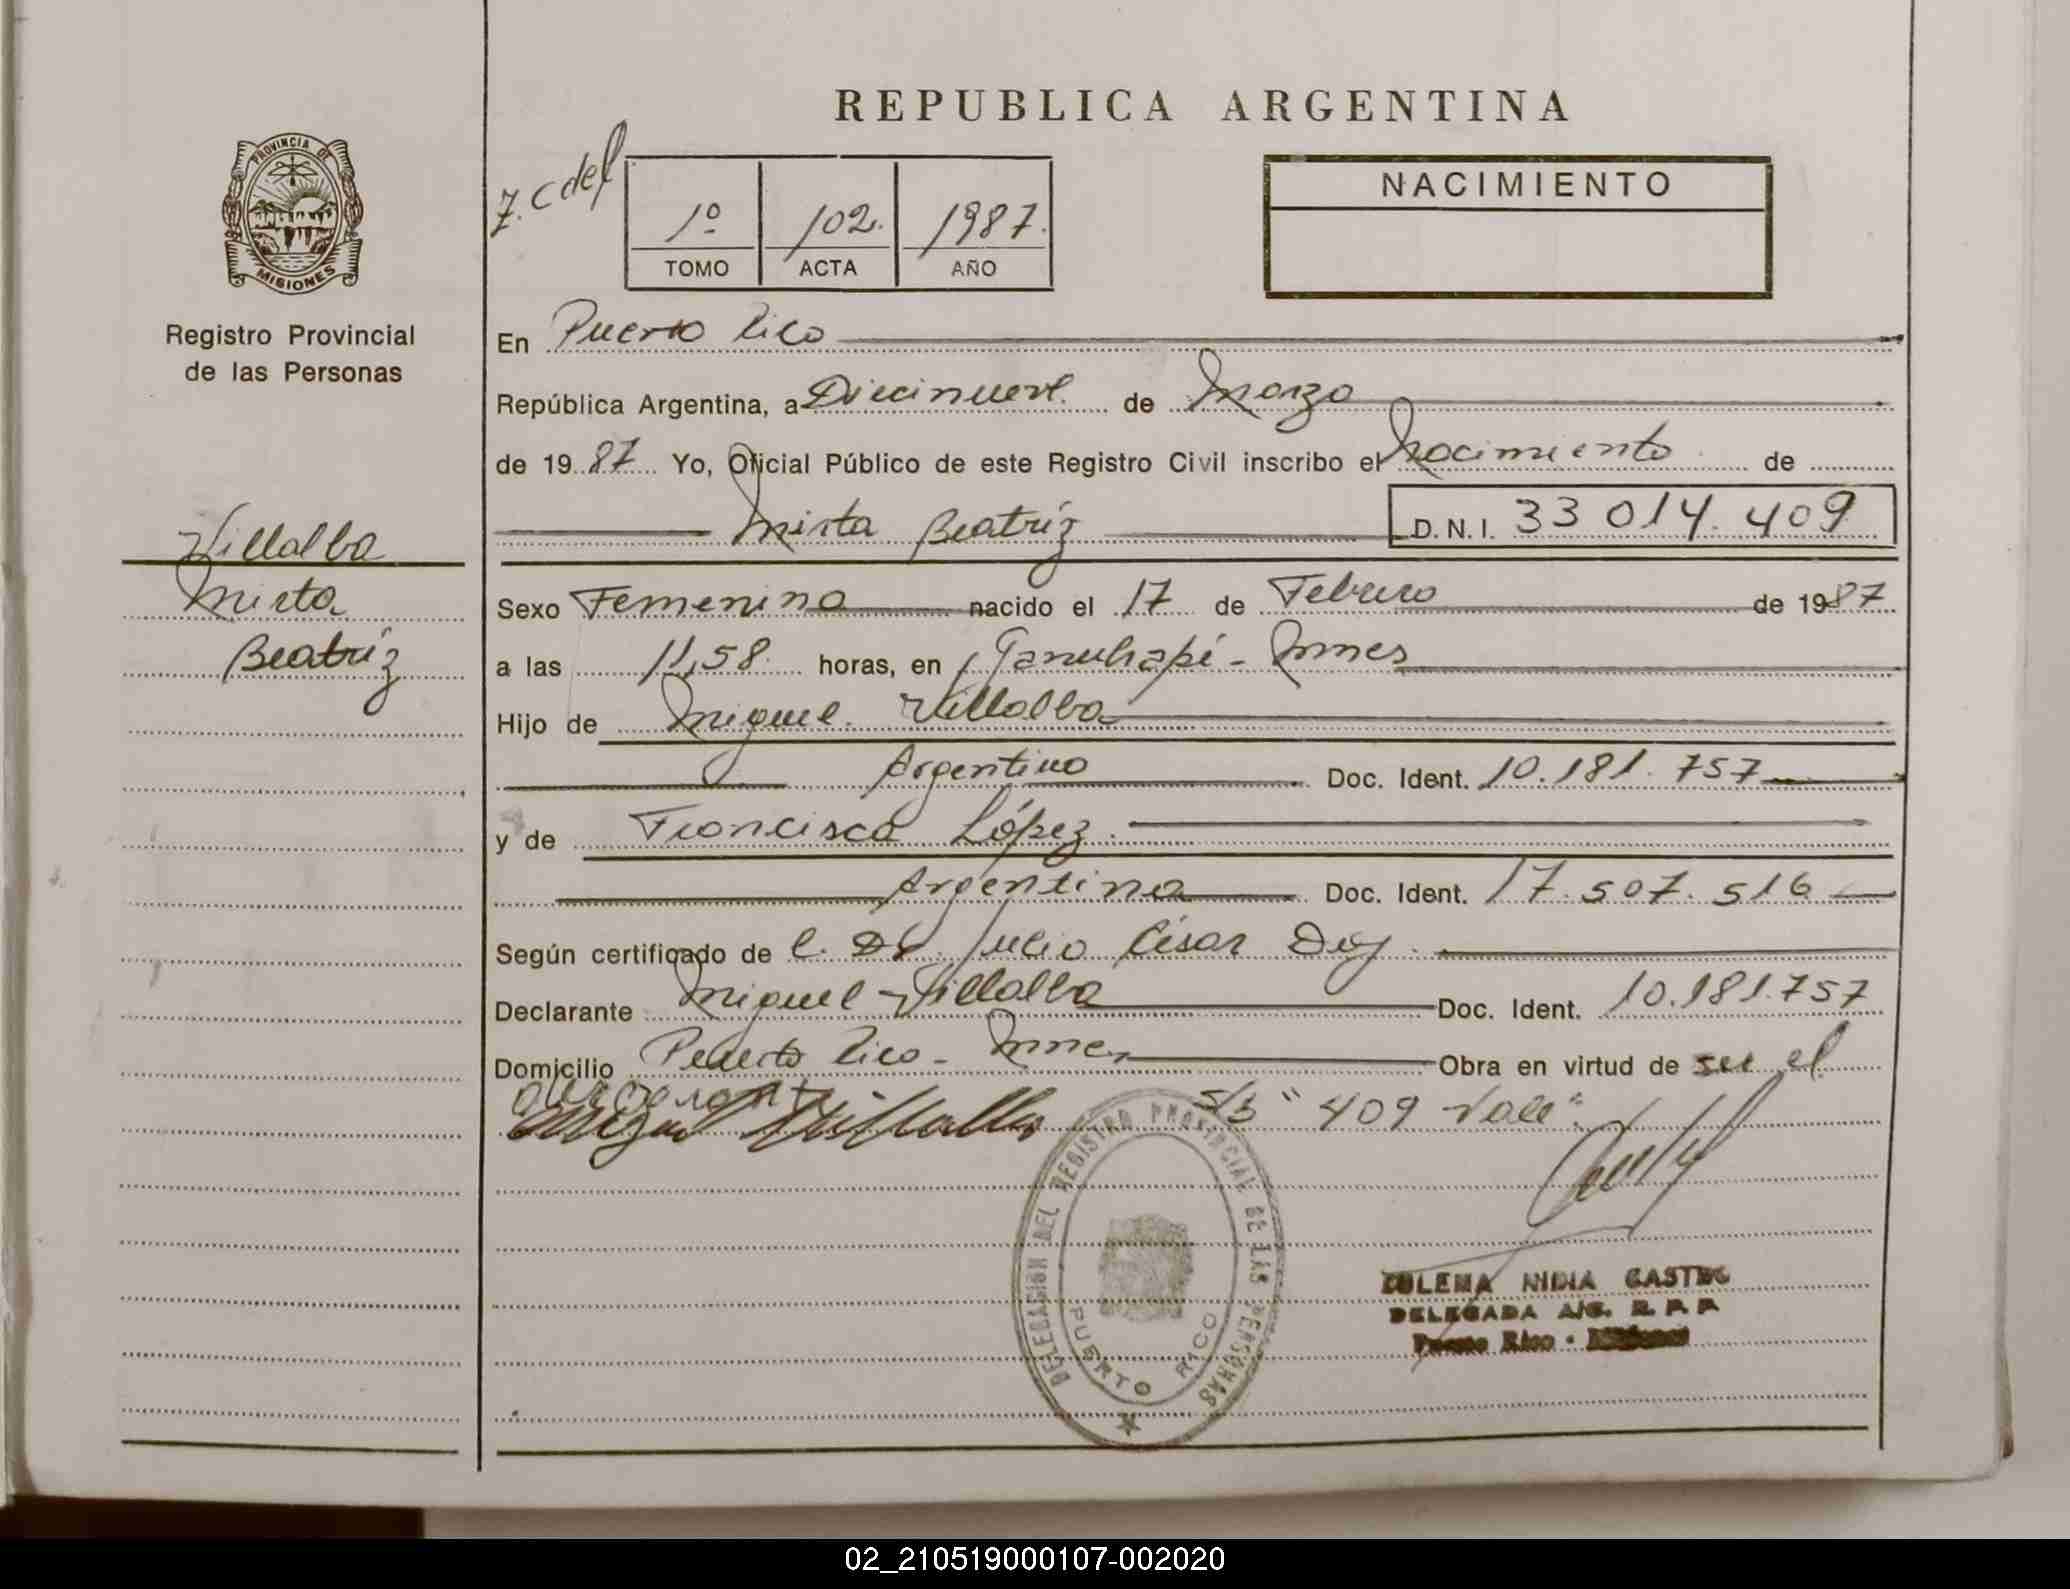 REPUBLICA ARGENTINA
PROVINCIA DE
MISIONES
Registro Provincial
de las Personas
7. C del
1º 102. 1987.
TOMO ACTA AÑO
NACIMIENTO
En Puerto Rico
República Argentina, a Diecinueve de Marzo
de 1987 Yo, Oficial Público de este Registro Civil inscribo el Nacimiento de
Mirta Beatríz D.N.I. 33 014.409
Villalba
Mirta
Beatríz
Sexo Femenino nacido el 17 de Febrero de 1987
a las 11,58. horas, en Garuhapé - Mnes
Hijo de Miguel Villalba
Argentino Doc. Ident. 10.181.757
y de Francisca López.
Argentina Doc. Ident. 17.507.516
Según certificado de Dr. Julio César
Declarante Miguel Villalba Doc. Ident. 10.181.757
Domicilio Puerto Rico - Mnes Obra en virtud de ser el
declarante S/b " 409 Vale"
Miguel Villalba
DELEGACION DEL REGISTRO PROVINCIAL DE LAS PERSONAS
PUERTO RICO
ZULEMA NIDIA CASTRO
DELEGADA A/C. R. P. P.
Puerto Rico - Misiones
02_210519000107-002020